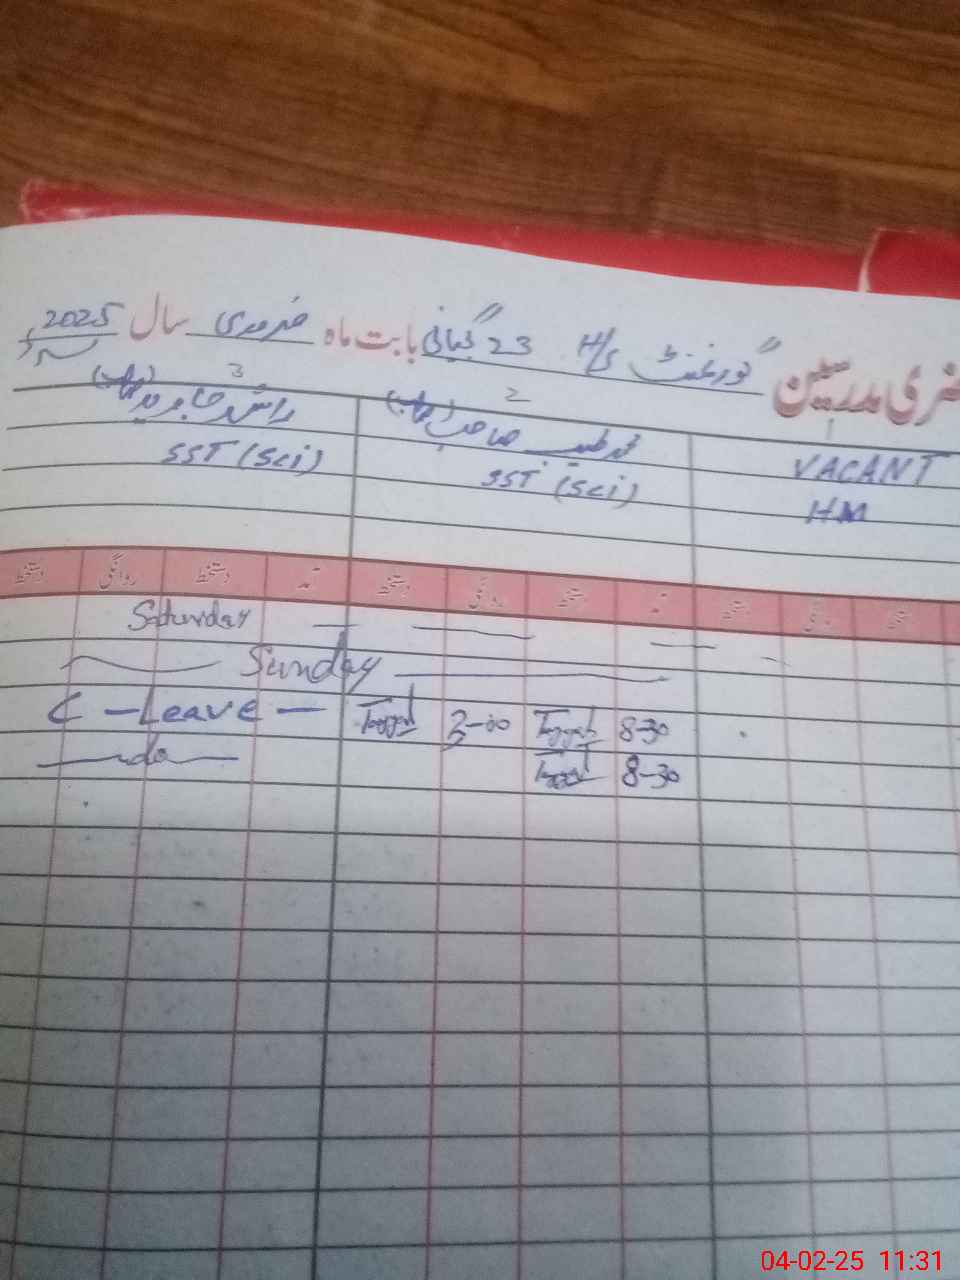 حاضری مدرسین "گورنمنٹ H/S 23 گیانی" بابت ماہ فروری سال 2025
1 2 3
VACANT محمد طیب صاحب راشد جاوید
HM SST (Sci) SST (Sci)
دستخط روانگی دستخط آمد دستخط روانگی دستخط آمد دستخط روانگی دستخط
Saturday
Sunday
C - Leave - 3-00 8-30
do 8-30
04-02-25 11:31